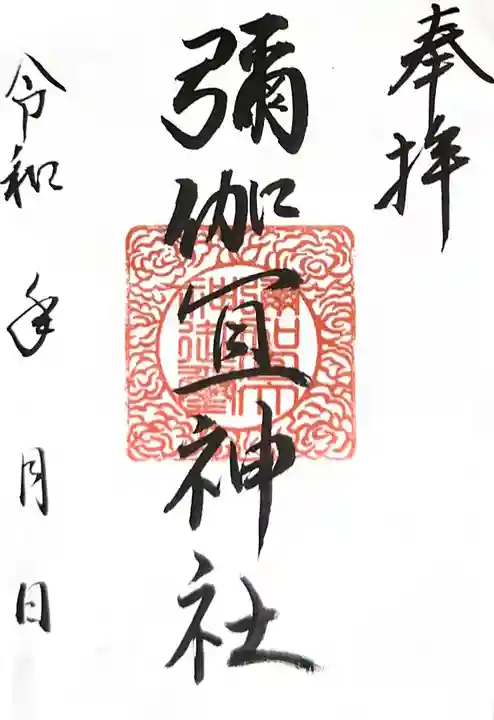 奉拝
彌伽宜神社
令和 年 月 日